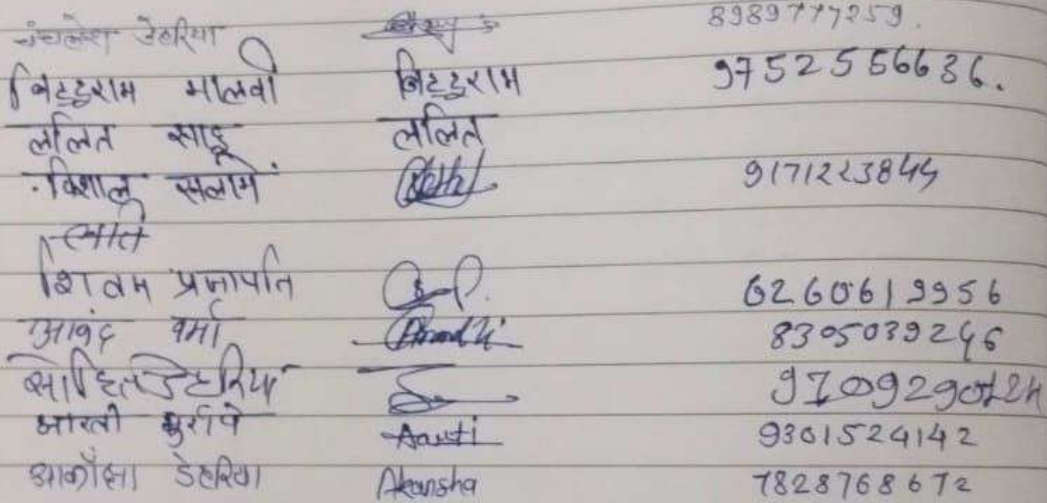 चंचलेश डेहरिया 8989777259.
बिट्टुराम मालवी बिट्टुराम 9752556636.
ललित साहू ललित
विशाल सलामे 9171223844
शिवम प्रजापति 6260619956
आनंद वर्मा Anand 8305039246
मोहित डेहरिया
आरती धुर्सापे Aarti 9301524142
आकाँक्षा डेहरिया Akansha 7828768672